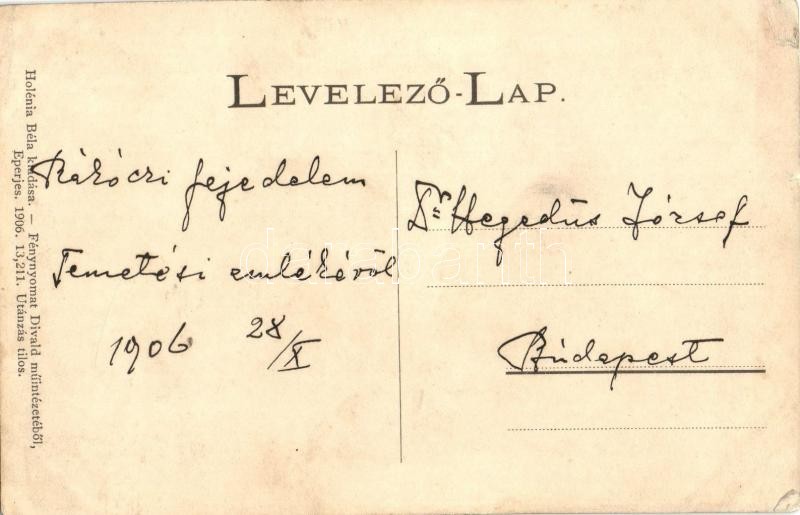 LEVELEZŐ-LAP.
Rákóczi fejedelem
Temetési emlékéről
1906 28/X
Dr Hegedüs József
Búdapest
Holénia Béla kiadása. — Fénynyomat Divald műintézetéből,
Eperjes. 1906. 13,211. Utánzás tilos.
darabanth